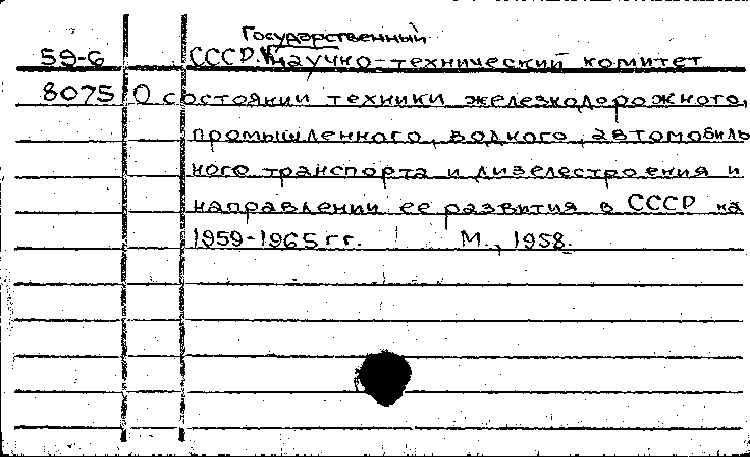 Государственный
59-6 СССР. научно-технический комитет
8075 О состоянии техники железнодорожного,
промышленного, водного, автомобиль
ного транспорта и дизелестроения и
направлении ее развития в СССР на
1959-1965 гг. М., 1958.